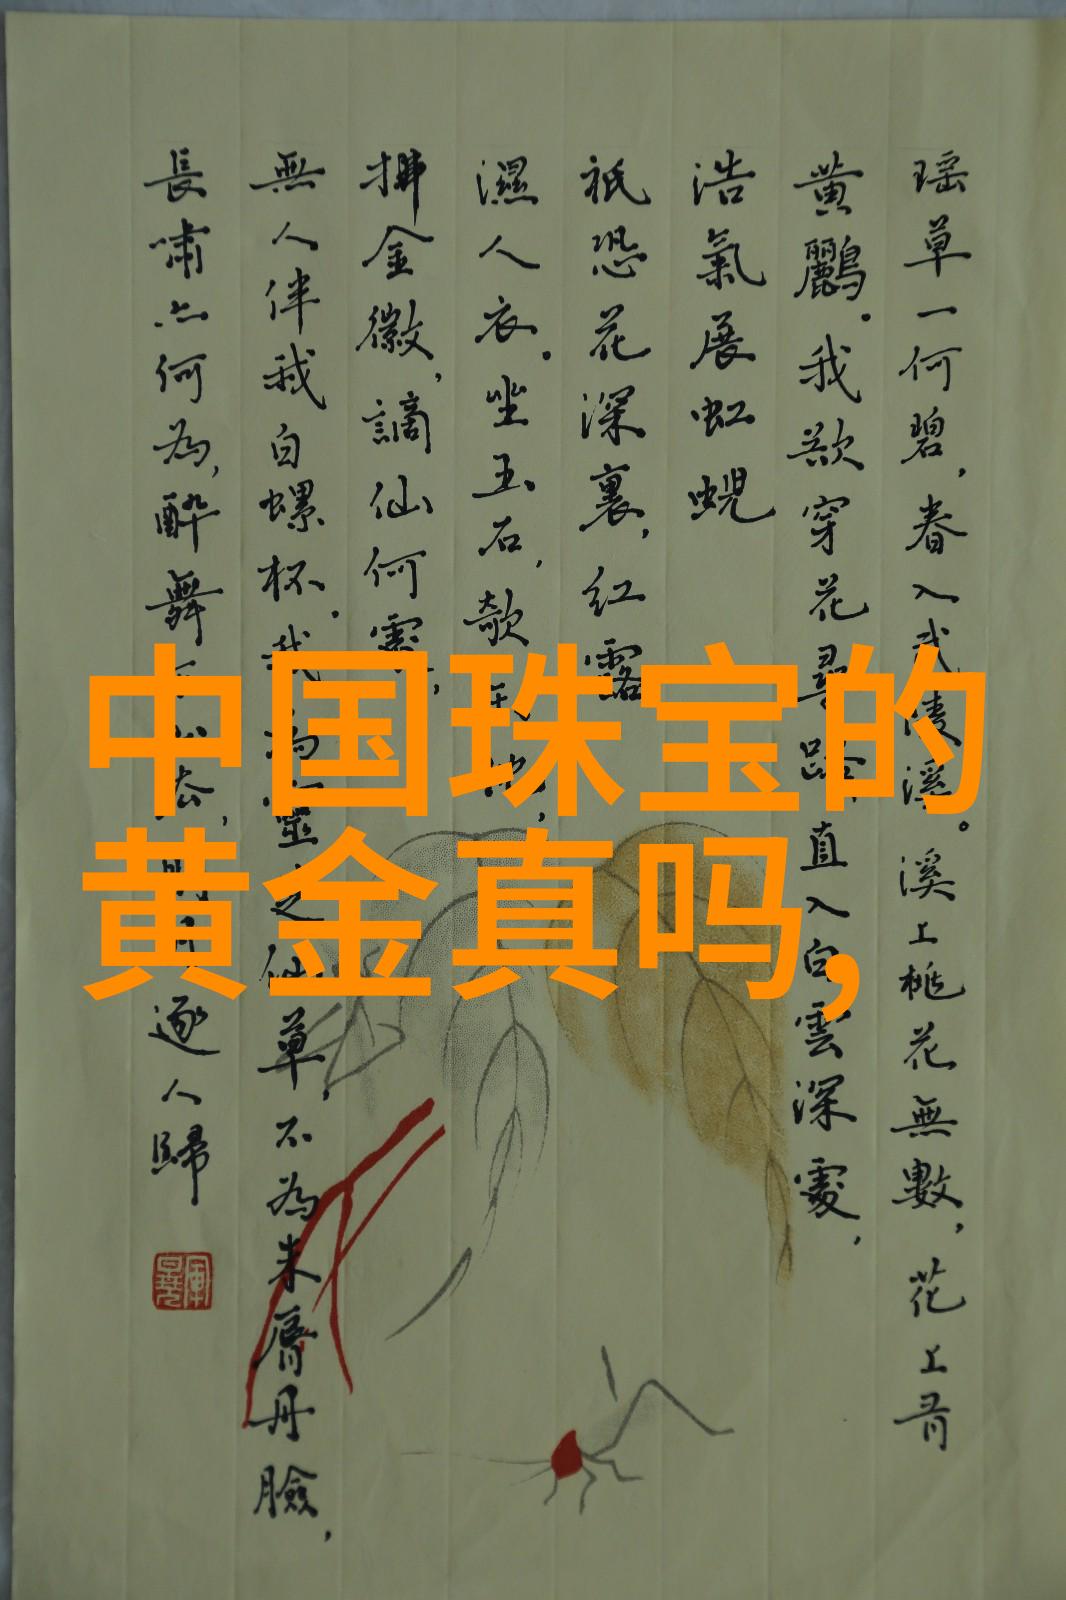 瑶草一何碧,春入武陵溪。溪上桃花無數,花上有
黄鸝。我欲穿花尋路,直入白雲深處,
浩氣展虹蜺
祇恐花深裏,紅露
濕人衣。坐玉石,欹玉枕,
拂金徽,謫仙何處,
無人伴我白螺杯。我為靈之仙草,不為朱脣丹臉,
長嘯亦何為,醉舞下山去,明月逐人歸
中国珠宝的
黄金真吗,